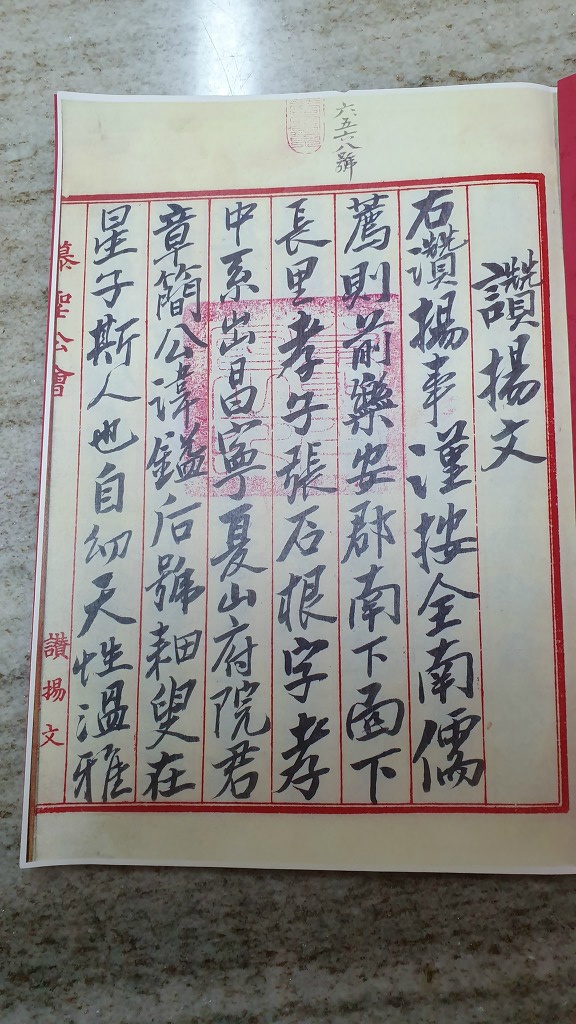 六五六八號
讚揚文
右讚揚事謹按全南儒
薦則前樂安郡南下面下
長里孝子張石根字孝
中系出昌寧夏山府院君
章簡公諱鎰后號耕叟在
星子斯人也自幼天性溫雅
慕聖公會
讚揚文